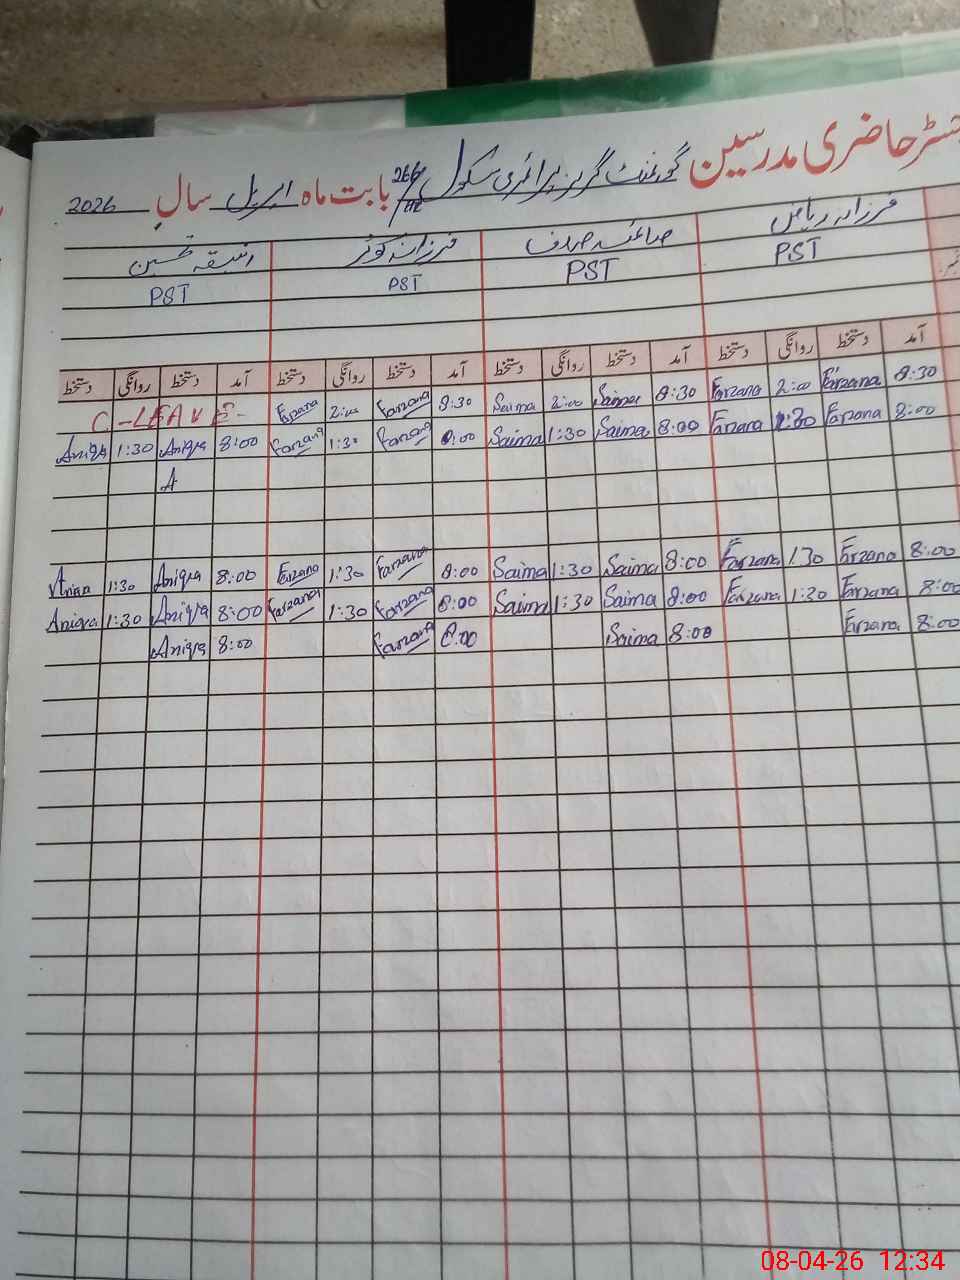 رجسٹر حاضری مدرسین گورنمنٹ گرلز پرائمری سکول 266/ بابت ماہ اپریل سال 2026
فرزانہ ریاض صائمہ صادق فرزانہ کوثر انیقہ تحسین
PST PST PST PST
آمد دستخط روانگی دستخط آمد دستخط روانگی دستخط آمد دستخط روانگی دستخط آمد دستخط روانگی دستخط
C-LEAVE- Farzana 2:00 Farzana 8:30 Saima 2:00 Saima 8:30 Farzana 2:00 Farzana 8:30
Aniqa 1:30 Aniqa 8:00 Farzana 1:30 Farzana 8:00 Saima 1:30 Saima 8:00 Farzana 1:30 Farzana 8:00
A
Aniqa 1:30 Aniqa 8:00 Farzana 1:30 Farzana 8:00 Saima 1:30 Saima 8:00 Farzana 1:30 Farzana 8:00
Aniqa 1:30 Aniqa 8:00 Farzana 1:30 Farzana 8:00 Saima 1:30 Saima 8:00 Farzana 1:30 Farzana 8:00
Aniqa 8:00 Farzana 8:00 Saima 8:00 Farzana 8:00
08-04-26 12:34